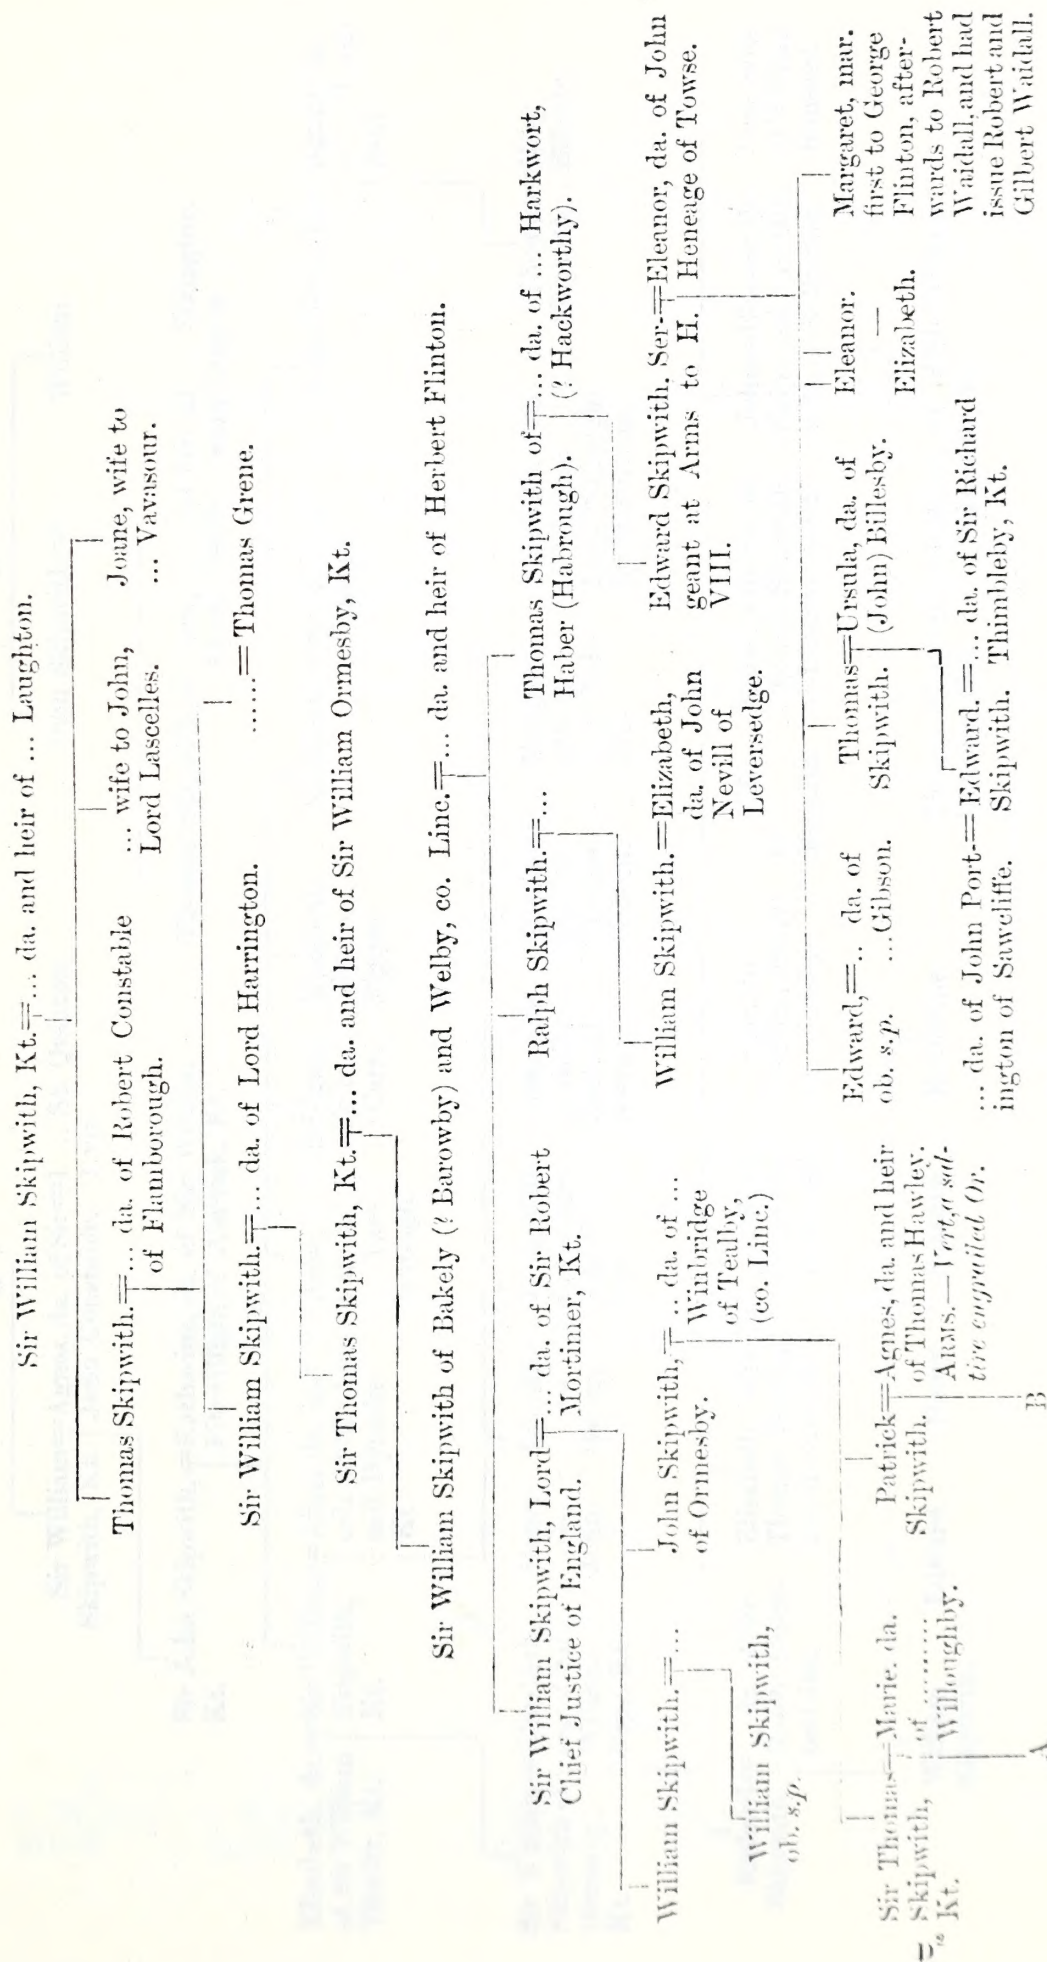 Sir William Skipwith, Kt.=... da. and heir of ... Laughton.
Thomas Skipwith.=... da. of Robert Constable
of Flamborough.
... wife to John,
Lord Lascelles.
Joane, wife to
... Vavasour.
Sir William Skipwith.=... da. of Lord Harrington.
......=Thomas Grene.
Sir Thomas Skipwith, Kt.=... da. and heir of Sir William Ormesby, Kt.
Sir William Skipwith of Bakely (? Barowby) and Welby, co. Linc.=... da. and heir of Herbert Flinton.
Sir William Skipwith, Lord=... da. of Sir Robert
Chief Justice of England. Mortimer, Kt.
Ralph Skipwith.=...
Thomas Skipwith of=... da. of ... Harkwort,
Haber (Habrough). (? Hackworthy).
William Skipwith.=...
John Skipwith,=... da. of ...
of Ormesby. Winbridge
of Tealby,
(co. Linc.)
William Skipwith.=Elizabeth,
da. of John
Nevill of
Leversedge.
Edward Skipwith, Ser-=Eleanor, da. of John
geant at Arms to H. Heneage of Towse.
VIII.
William Skipwith,
ob. s.p.
Sir Thomas=Marie, da.
Skipwith, of ..........
Kt. Willoughby.
A
Patrick=Agnes, da. and heir
Skipwith. of Thomas Hawley.
ARMS.—Vert, a sal-
tire engrailed Or.
B
Edward,=.. da. of
ob. s.p. ...Gibson.
Thomas=Ursula, da. of
Skipwith. (John) Billesby.
Eleanor.
—
Elizabeth.
Margaret, mar.
first to George
Flinton, after-
wards to Robert
Waidall, and had
issue Robert and
Gilbert Waidall.
... da. of John Port-=Edward.=... da. of Sir Richard
ington of Sawcliffe. Skipwith. Thimbleby, Kt.